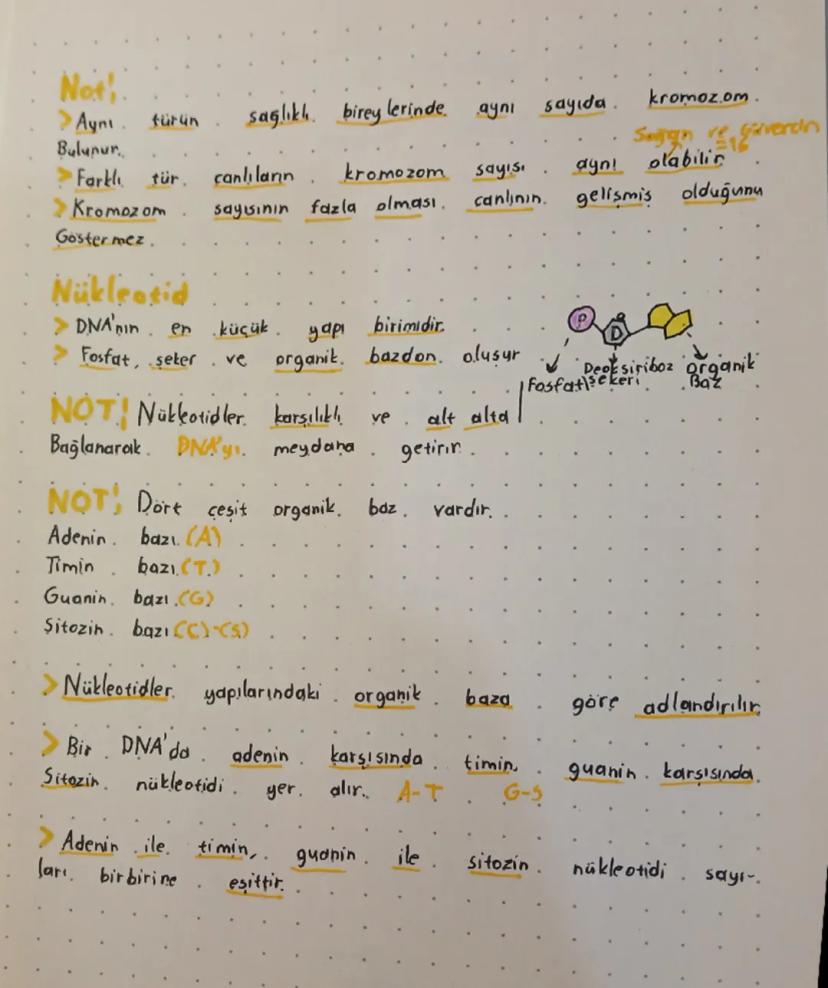 Not!
> Aynı türün sağlıklı bireylerinde aynı sayıda kromozom.
Bulunur.
Soğan ve güvercin
=16
> Farklı tür canlıların kromozom sayısı aynı olabilir
> Kromozom sayısının fazla olması canlının gelişmiş olduğunu
Göstermez.
Nükleotid
> DNA'nın en küçük yapı birimidir.
> Fosfat, şeker ve organik bazdan oluşur
P D
Fosfat Deoksiriboz organik
şekeri Baz
NOT! Nükleotidler karşılıklı ve alt alta
Bağlanarak DNA'yı meydana getirir.
NOT! Dört çeşit organik baz vardır.
Adenin bazı (A)
Timin bazı (T)
Guanin bazı (G)
Sitozin bazı (C)-(S)
> Nükleotidler yapılarındaki organik baza göre adlandırılır
> Bir DNA'da adenin karşısında timin, guanin karşısında
Sitozin nükleotidi yer alır. A-T G-S
> Adenin ile timin, guanin ile sitozin nükleotidi sayı-
ları birbirine eşittir.